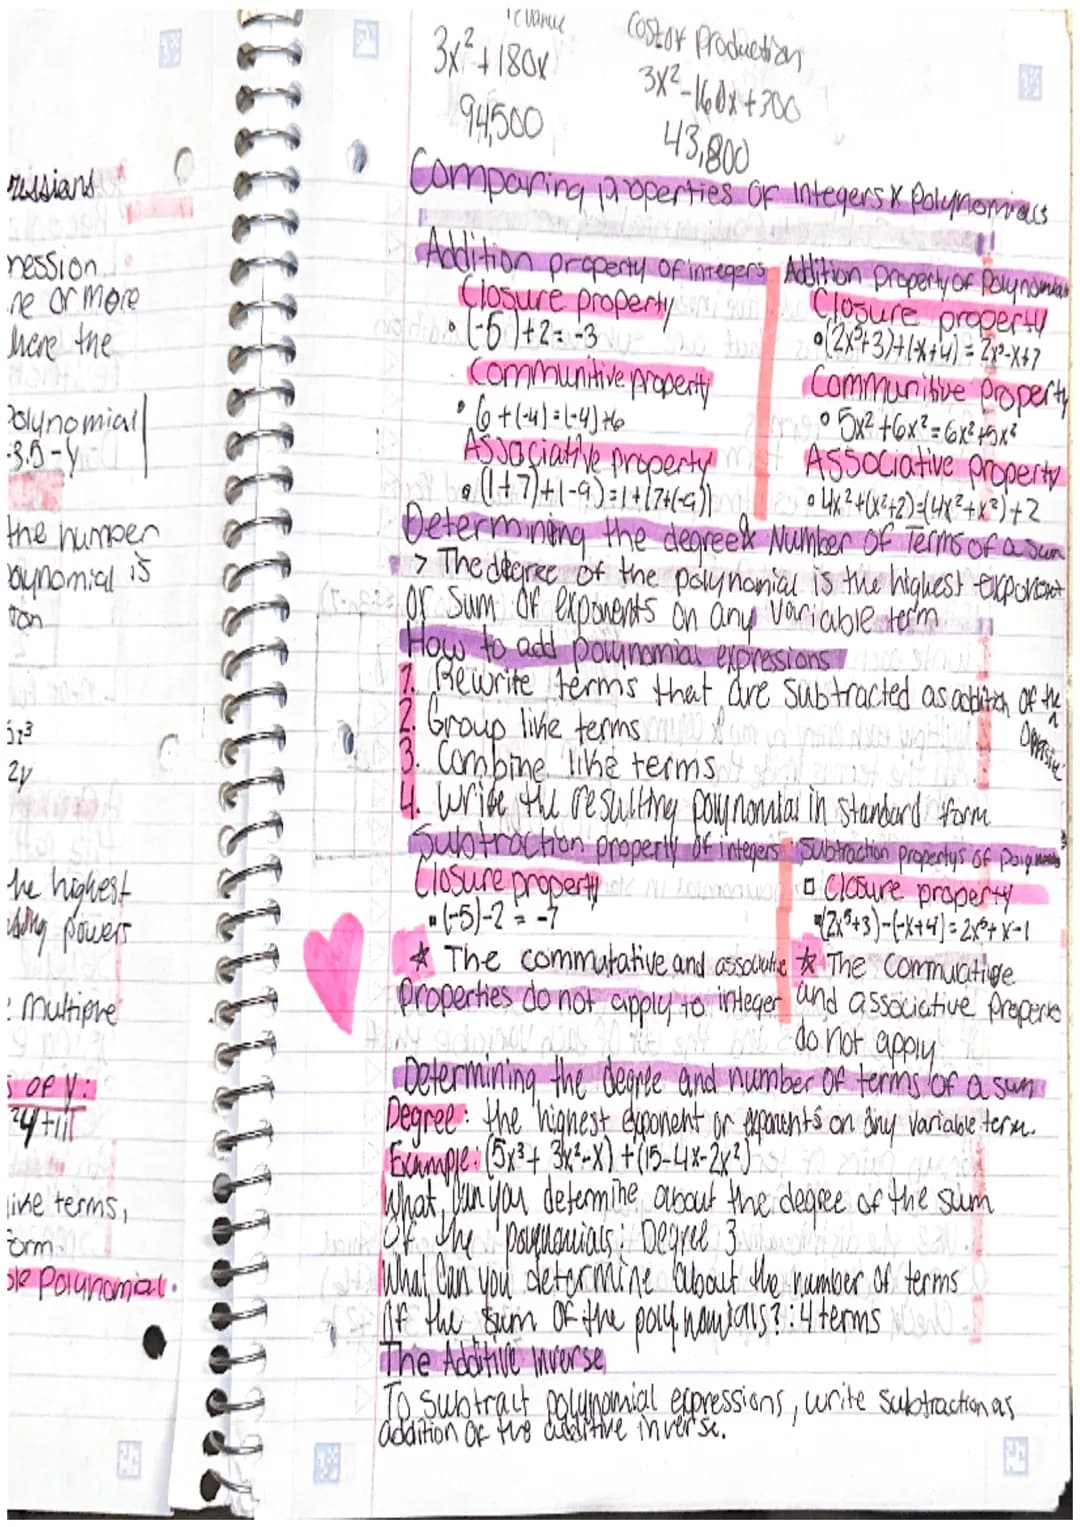 revanue Cost of production
3x² + 180x 3x² - 160x + 300
94,500 43,800
Comparing properties of integers & Polynomials
Addition property of integers Addition property of Polynomials
Closure property Closure property
(-5)+2=-3 (2x⁵+3)+(-x+4) = 2x⁵-x+7
Communitive property Communitive property
6+(-4)=(-4)+6 5x²+6x²=6x²+5x²
Associative property Associative property
(1+7)+(-9)=1+(7+(-9)) 4x²+(x²+2)=(4x²+x²)+2
Determining the degree & Number of Terms of a sum
> The degree of the polynomial is the highest exponent
or sum of exponents on any variable term
How to add polynomial expressions
1. Rewrite terms that are subtracted as addition of the
2. Group like terms
3. Combine like terms
4. Write the resulting polynomial in standard form
Subtraction property of integers Subtraction propertys of
Closure property Closure property
(-5)-2 = -7 (2x⁵+3)-(-x+4)=2x⁵+x-1
★ The commutative and associative ★ The
properties do not apply to integer and associative
do not apply
Determining the degree and number of terms of a sum
Degree: the highest exponent or exponents on any variable term.
Example: (5x³+ 3x²-x) +(15-4x-2x²)
What can you determine about the degree of the sum
of the polynomials: Degree 3
What can you determine about the number of terms
of the sum of the polynomials?: 4 terms
The Additive Inverse
To subtract polynomial expressions, write subtraction as
addition of the additive inverse.
ressians
ression
ne or more
here the
Polynomial
-3.5-y
the number
oynomial is
ton
2y
he highest
powers
multiple
s of y:
ike terms,
orm.
ole polynomial.